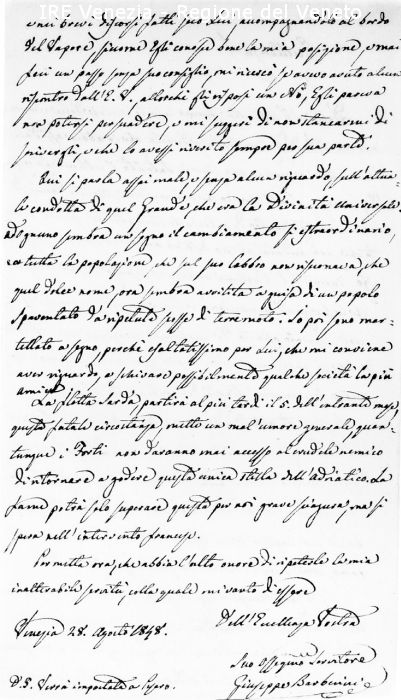 IRE Venezia - Regione del Veneto
nei brevi discorsi fatti seco Lui, accompagnandolo al bordo
del Vapore, siccome Egli conosce bene la mia posizione, e mai
feci un passo senza suo consiglio, mi ricercò se avevo avuto alcun
riscontro dall'E. V., allorchè gli risposi un Nò, Egli pareva
non potersi persuadere, e mi suggerì di non stancarmi di
scriverle, e che lo avessi riverito sempre per sua parte.
Qui si parla assai male, e senza alcun riguardo, sull'attua-
le condotta di quel Grande, che era la Divinità Universale.
Ad ognuno sembra un sogno il cambiamento sì straordinario,
e tutta la popolazione, che sul suo labbro non risuonava, che
quel dolce nome, ora sembra avvilita a guisa di un popolo
spaventato da ripetute scosse di terremoto. Io poi sono mar-
tellato a segno, perchè esaltatissimo per Lui, che mi conviene
aver riguardo, e schivare possibilmente qualche società la più
amica.
La flotta Sarda, partirà al più tardi il 5. dell'entrante mese,
questa fatale circostanza, mette un mal'umore generale, quan-
tunque i Forti non daranno mai accesso al crudele nemico
di ritornare a godere questa unica stilla dell'adriatico. La
fame potrà solo superare questa per noi grave sciagura, ma si
spera nell'intervento francese.
Permetta ora, che abbia l'alto onore di ripeterle la mia
inalterabile servitù, colla quale mi vanto di essere
Venezia 28. Agosto 1848.
Dell'Eccellenza Vostra
Suo Ossequioso Servitore
Giuseppe Barberini
P.S. Verrà impostata a Pesaro.